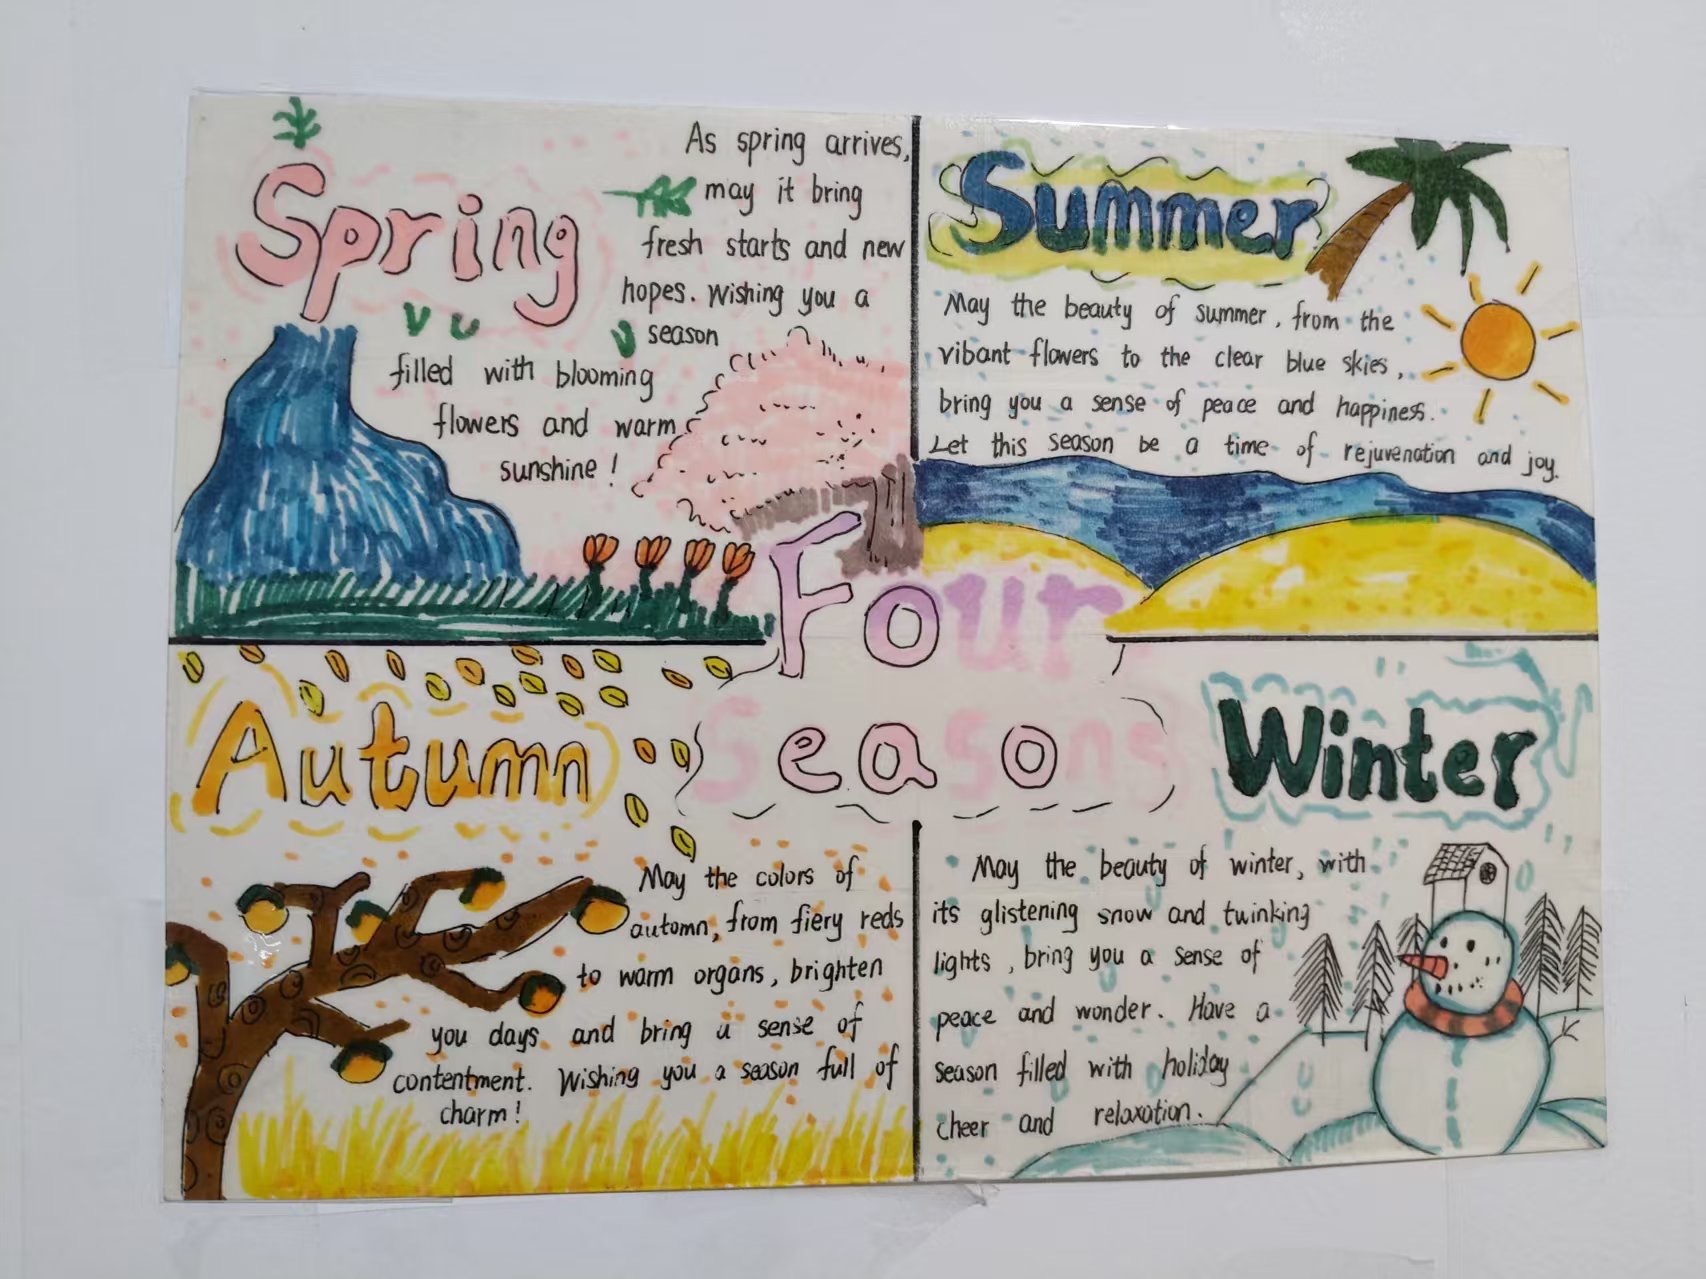 Spring
As spring arrives,
may it bring
fresh starts and new
hopes. Wishing you a
season
filled with blooming
flowers and warm
sunshine!
Summer
May the beauty of summer, from the
vibant flowers to the clear blue skies,
bring you a sense of peace and happiness.
Let this season be a time of rejuvenation and joy.
Four
Seasons
Autumn
May the colors of
automn, from fiery reds
to warm organs, brighten
you days and bring a sense of
contentment. Wishing you a season full of
charm!
Winter
May the beauty of winter, with
its glistening snow and twinking
lights, bring you a sense of
peace and wonder. Have a
season filled with holiday
cheer and relaxation.